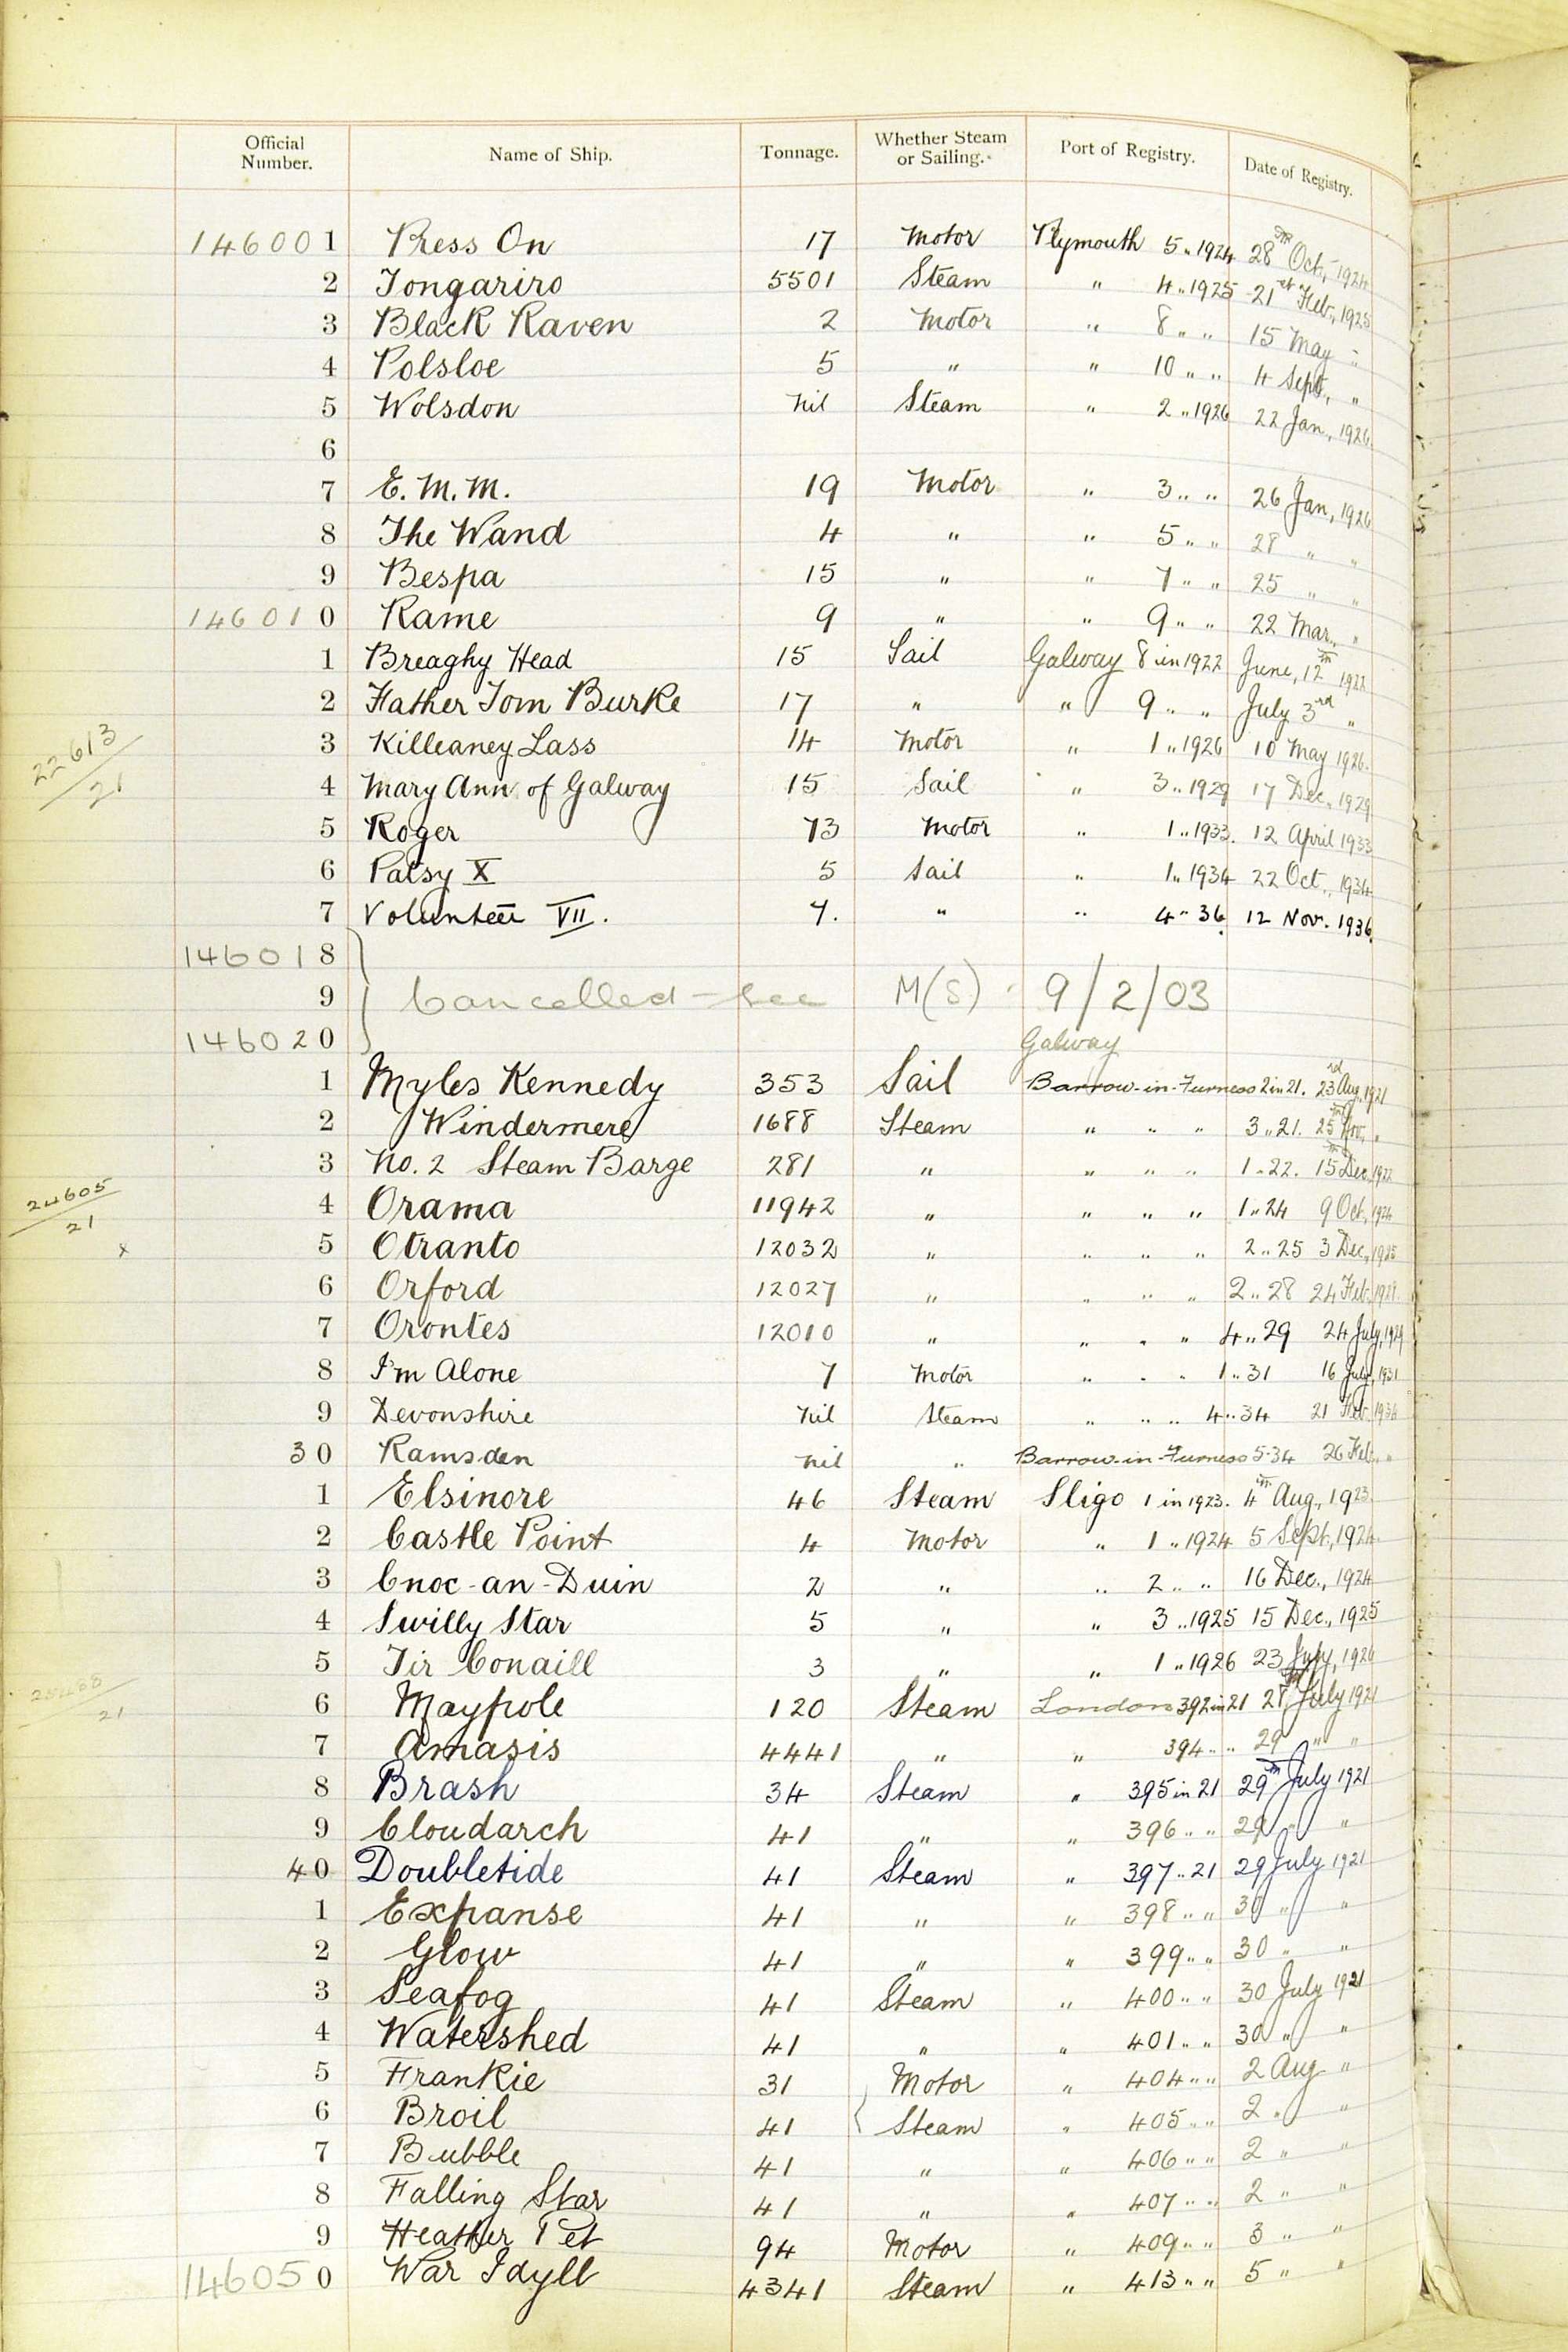 Official Number. Name of Ship. Tonnage. Whether Steam or Sailing. Port of Registry. Date of Registry.
146001 Press On 17 Motor Plymouth 5 " 1924 28th Oct., 1924
2 Tongariro 5501 Steam " 4 " 1925 21st Feb., 1925
3 Black Raven 2 Motor " 8 " " 15 May "
4 Polsloe 5 " " 10 " " 4 Sept., "
5 Wolsdon Nil Steam " 2 " 1926 22 Jan., 1926
6
7 E. M. M. 19 Motor " 3 " " 26 Jan., 1926
8 The Wand 4 " " 5 " " 28 " "
9 Bespa 15 " " 7 " " 25 " "
146010 Rame 9 " " 9 " " 22 Mar., "
1 Breaghy Head 15 Sail Galway 8 in 1922 June, 12th 1922
2 Father Tom Burke 17 " " 9 " " July 3rd "
22613/21
3 Killeaney Lass 14 Motor " 1 " 1926 10 May 1926.
4 Mary Ann of Galway 15 Sail " 3 " 1929 17 Dec., 1929
5 Roger 73 Motor " 1 " 1933. 12 April 1933
6 Patsy X 5 Sail " 1 " 1934 22 Oct., 1934
7 Volunteer VII. 7. " " 4 " 36. 12 Nov. 1936.
146018
9 Cancelled - see M(S) 9/2/03
146020 Galway
1 Myles Kennedy 353 Sail Barrow-in-Furness 2 in 21. 23rd Aug., 1921
2 Windermere 1688 Steam " " " 3 " 21. 25th Nov., "
3 No. 2 Steam Barge 281 " " " " 1 " 22. 15th Dec., 1922
24605/21
4 Orama 11942 " " " " 1 " 24 9 Oct., 1924
x
5 Otranto 12032 " " " " 2 " 25 3 Dec., 1925
6 Orford 12027 " " " " 2 " 28 24 Feb.
7 Orontes 12010 " " " " 4 " 29 24 July, 1929
8 I'm Alone 7 Motor " " " 1 " 31 16 July, 1931
9 Devonshire Nil Steam " " " 4 " 34 21 Feb. 1934
30 Ramsden Nil " Barrow-in-Furness 5 " 34 26 Feb., "
1 Elsinore 46 Steam Sligo 1 in 1923. 4th Aug., 1923.
2 Castle Point 4 Motor " 1 " 1924 5 Sept., 1924
3 Cnoc-an-Duin 2 " " 2 " " 16 Dec., 1924
4 Swilly Star 5 " " 3 " 1925 15 Dec., 1925
5 Tir Conaill 3 " " 1 " 1926 23 July, 1926
21
6 Maypole 120 Steam London 392 in 21 28th July 1921
7 Amasis 4441 " " 394 " " 29 " "
8 Brash 34 Steam " 395 in 21 29th July 1921
9 Cloudarch 41 " " 396 " " 29 " "
40 Doubletide 41 Steam " 397 " 21 29 July 1921
1 Expanse 41 " " 398 " " 30 " "
2 Glow 41 " " 399 " " 30 " "
3 Seafog 41 Steam " 400 " " 30 July 1921
4 Watershed 41 " " 401 " " 30 " "
5 Frankie 31 Motor " 404 " " 2 Aug "
6 Broil 41 Steam " 405 " " 2 " "
7 Bubble 41 " " 406 " " 2 " "
8 Falling Star 41 " " 407 " " 2 " "
9 Heather Pet 94 Motor " 409 " " 3 " "
146050 War Idyll 4341 Steam " 413 " " 5 " "